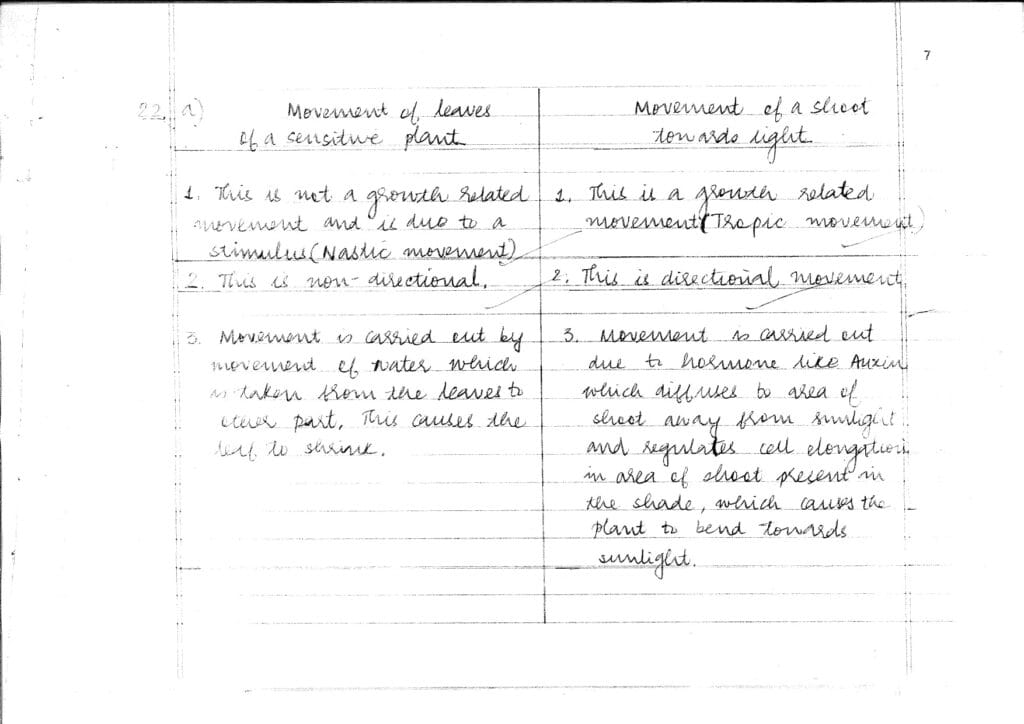 7
22. a)
Movement of leaves
of a sensitive plant
1. This is not a growth related
movement and is due to a
stimulus (Nastic movement)
2. This is non-directional.
3. Movement is carried out by
movement of water which
is taken from the leaves to
other part. This causes the
leaf to shrink.
Movement of a shoot
towards light
1. This is a growth related
movement (Tropic movement)
2. This is directional movement
3. Movement is carried out
due to hormone like Auxin
which diffuses to area of
shoot away from sunlight
and regulates cell elongation
in area of shoot present in
the shade, which causes the
plant to bend towards
sunlight.